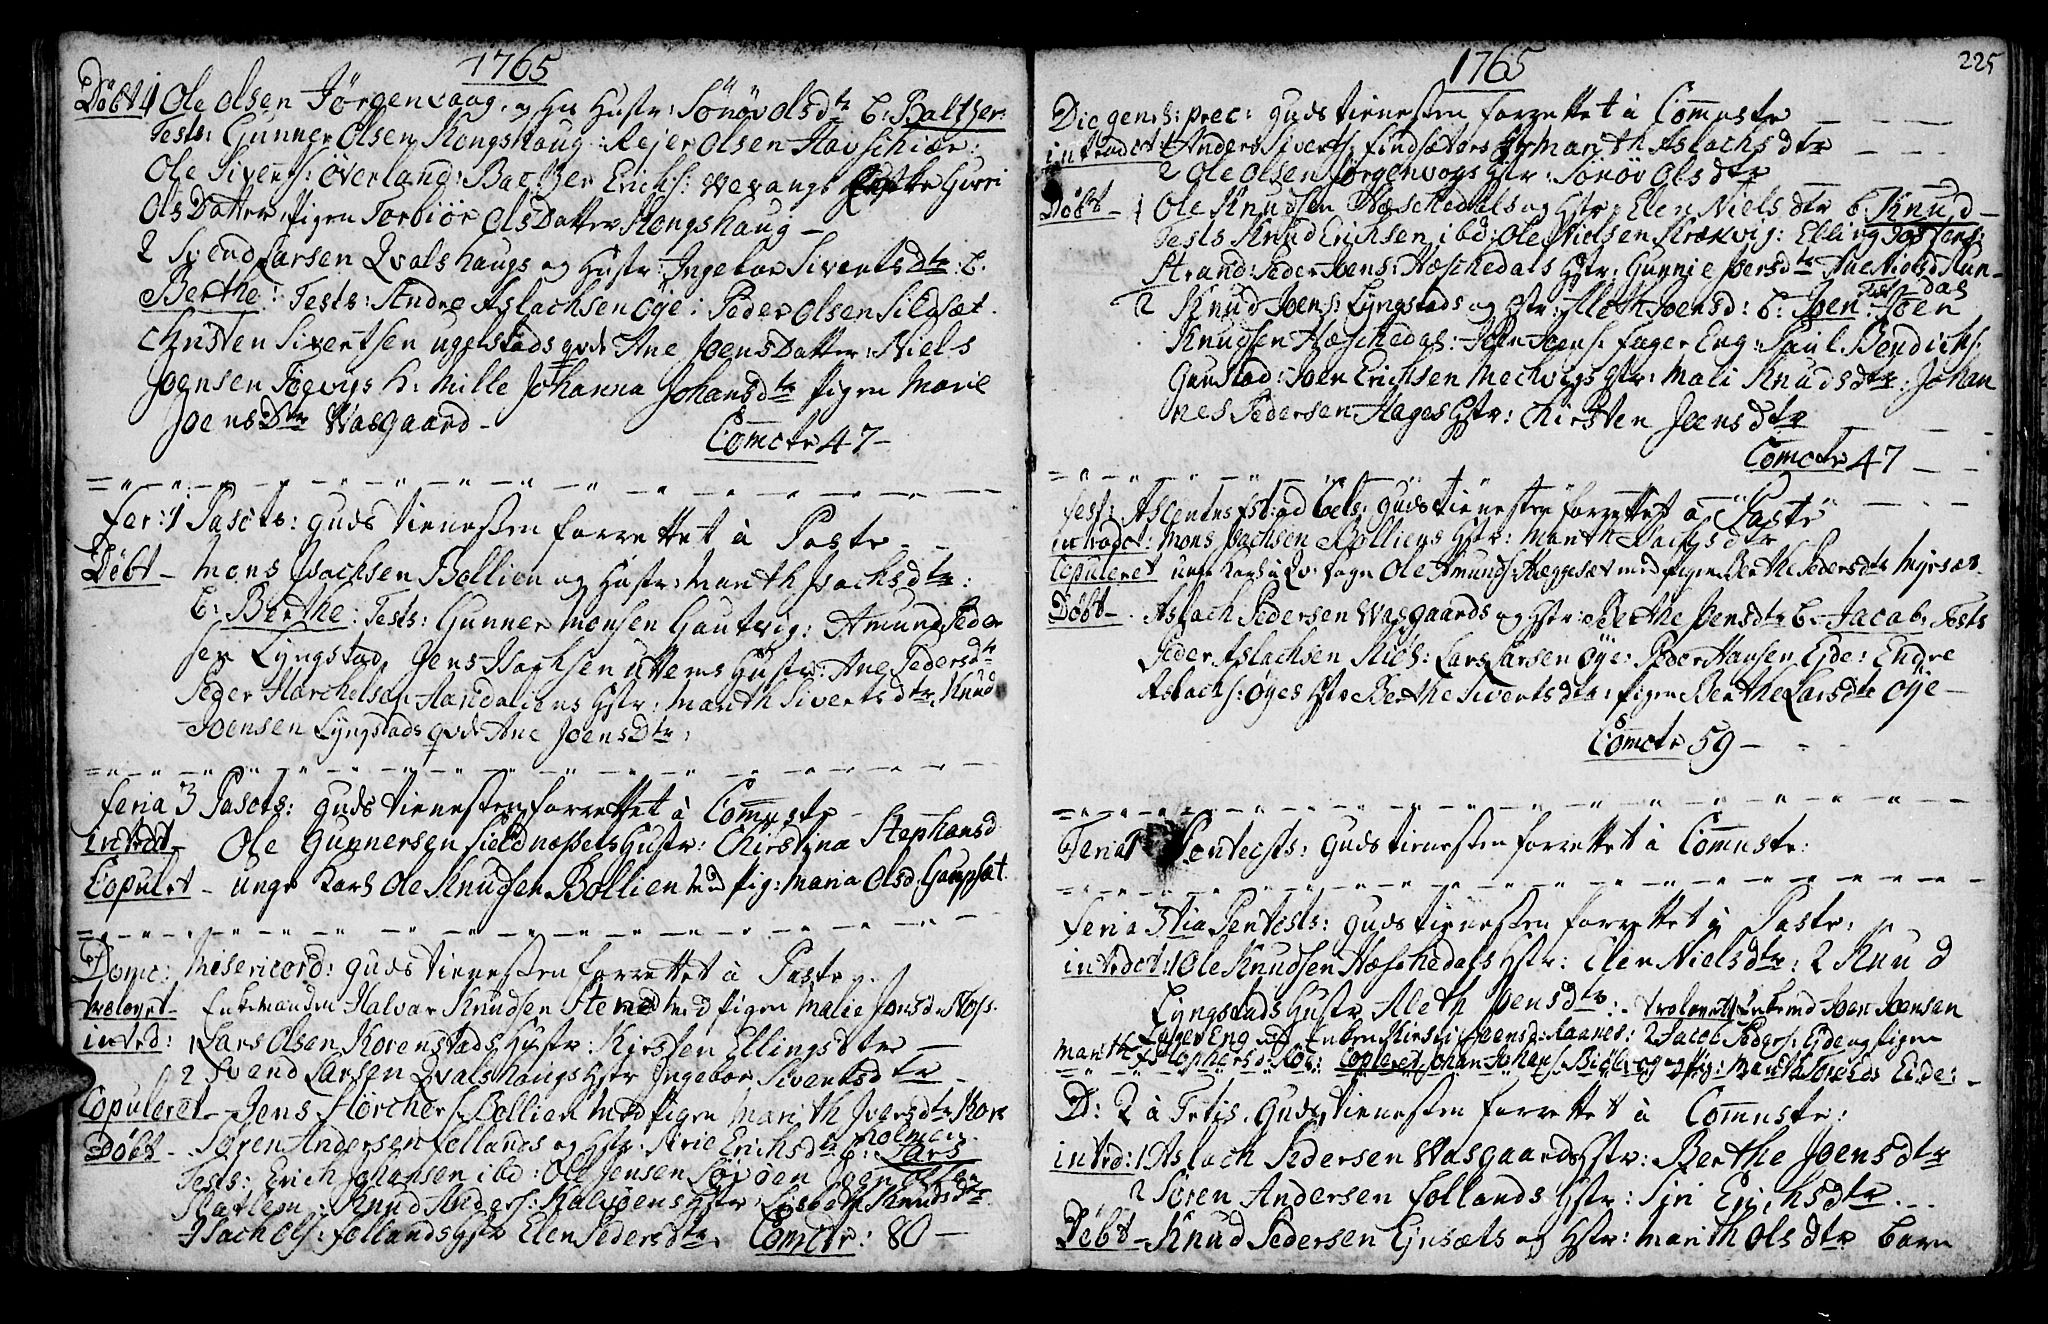 1765
Döbt 1 Ole Olsen Jörgenvaag, og hs Hustr: Sönöv Olsdtr b: Baltzer:
Tests: Gunner Olsen Kongshaug: Rejer Olsen Havschiær:
Ole Sivers: Överland: Baltzer Erichs: Wevangs Gurri
Ols Datter, Pigen Torbiör Ols Datter Kongshaug –
2 Svend Larsen Qvalshaugs og Hustr: Ingebor Siverts Dtr: b.
Berthe: Tests: Andre Aslachsen Öye: Peder Olsen Sildsæt.
Christen Sivertsen Uggelstads qvde Ane Joens Datter: Niels
Joensen Toevigs h: Mille Johanna Johansdtr Pigen Marie
Joens Dtr Wasgaard –
Comctr 47 –
Fer: 1 Pascts: Guds tienesten forrettet à Paste
Döbt – Mons Isachsen Bollien og Hustr: Marith Isachsdtr:
b: Berthe: Tests: Gunner Monsen Gautvig: Amund Peder
sen Lyngstad, Jens Isachsen Uttems Hustr: Ane Pedersdtr
Peder Harchelsen Aandaliens Hstr: Marith Sivertsdtr, Knud
Joensen Lyngstads qvde Ane Joens Dtr:
Feria 3 Pascts: Guds tienesten forrettet à Comnste
introdt – Ole Gunnersen Fieldnæssets Hustr: Chirstina Stephansd
Copulet – unge Karl Ole Knudsen Bollien med Pig: Maria Olsd: Gaupset.
Domc: Misericord: Guds tienesten forrettet à Paste
trolovet – Enkemanden Halvar Knudsen Stene med Pigen Malie Jonsd:
introd: 1 Lars Olsen Korenstads Hustr: Kirsten Ellingsdtr –
2 Svend Larsen Qvalshaugs Hstr Ingebor Sivertsdtr –
Copuleret – Jens Storchers: Bollien med Pigen Marith Iversdtr Kors
holmen.
Döbt – Sören Andersen Follands og Hstr: Sirie Erichsdtr b: Lars
Tests: Erich Johansen ibd: Ole Jensen Söröen Joen Olsen
Slatlem: Knud Anders: Kalvöens Hstr: Lisbeth Knudsdtr.
Isachs: Follands Hstr Elen Pedersdtr. Comctr: 80 –
1765
225
Die gens: prec: Guds tienesten forrettet à Comnste
introdct: 1 Anders Siverts: Findsæters Hstr Marith Aslachsdtr
2 Ole Olsen Jörgenvogs Hstr: Sönöv Olsdtr
Döbt – 1 Ole Knudsen Hæschedals og Hstr: Elen Niels dtr b: Knud –
Tests Knud Erichsen ibd: Ole Nielsen Strækvig: Elling
Strand: Peder Joens: Hæschedals Hstr: Gunnie Joersdtr Ane Nielsd Run-
das
2 Knud Joens: Lyngstads og Hstr: Aleth Joensd: b: Joen: Tests Joen
Knudsen Hæschedas: Joen Joens: Fager Eng: Paul Bendichs:
Gunstad: Joen Erichsen Mechvigs Hstr: Mali Knudsdtr: Johan
nes Pedersen Hages Hstr: Chirsten Joensdtr
Comctr 47
Fest: Ascentus Guds tienesten forrettet à Paste
introdt: Mons Isachsen Bolliens Hstr: Marith Isachsdtr
Copuleret unge Karl Ole Amunds: Hæggeset med Pigen Berthe Pedersdtr Myrsæt
Döbt – Aslach Pedersen Wasgaards og Hstr: Berthe Joensdtr b: Jacob, Tests
Peder Aslachsen Riös: Lars Larsen Öye: Peder Hansen Ejde: Endre
Aslachs: Öyes Hstr Berthe Sivertsdtr: Pigen Berthe Larsdtr Öye –
Comctr 59 –
Feria 1 Pentects: Guds tienesten forrettet à Comnste:
Feria 3tia Pentects: Guds tienesten forrettet à Paste:
introdct: 1 Ole Knudsen Hæschedals Hstr: Elen Nielsdtr: 2 Knud
Lyngstads Hustr Aleth Joensdtr: trolovet 1 Enkemd Joen Joensen
Fager Eng Enken Kirsti Joensd: Raanes: 2 Jacob Peders: Eide og Pigen
Marith Stophersd: Copleret Johan Johans: og Pig: Marith Eide:
D: 2 à Trtis: Guds tienesten forrettet à Comnste:
introd: 1 Aslach Pedersen Wasgaards Hstr: Berthe Joensdtr
2 Sören Andersen Follands Hstr: Siri Erichsdtr
Döbt – Knud Pedersen Ejusæts og Hstr: Marith Olsdtr barn